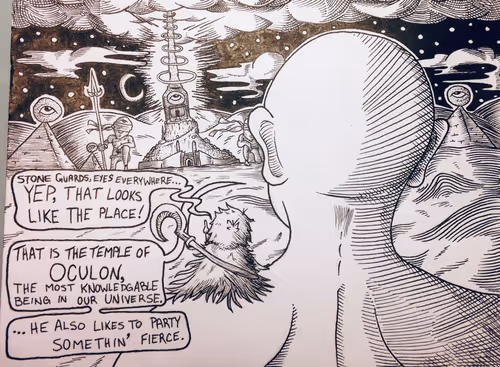 STONE GUARDS, EYES EVERYWHERE...
YEP, THAT LOOKS
LIKE THE PLACE!
THAT IS THE TEMPLE OF
OCULON,
THE MOST KNOWLEDGABLE
BEING IN OUR UNIVERSE.
...HE ALSO LIKES TO PARTY
SOMETHIN' FIERCE.